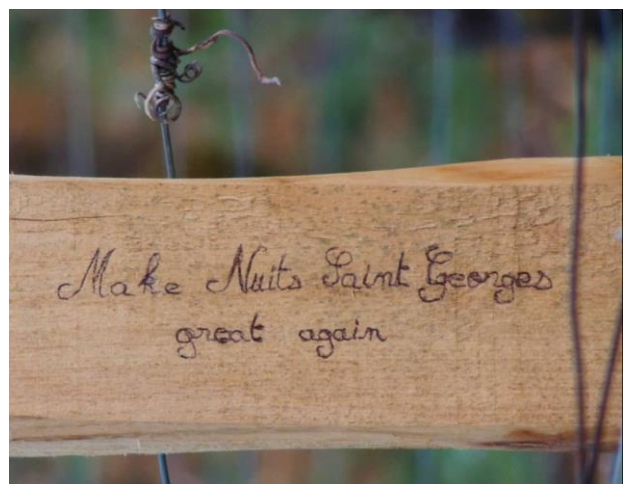 Make Nuits Saint Georges
great again